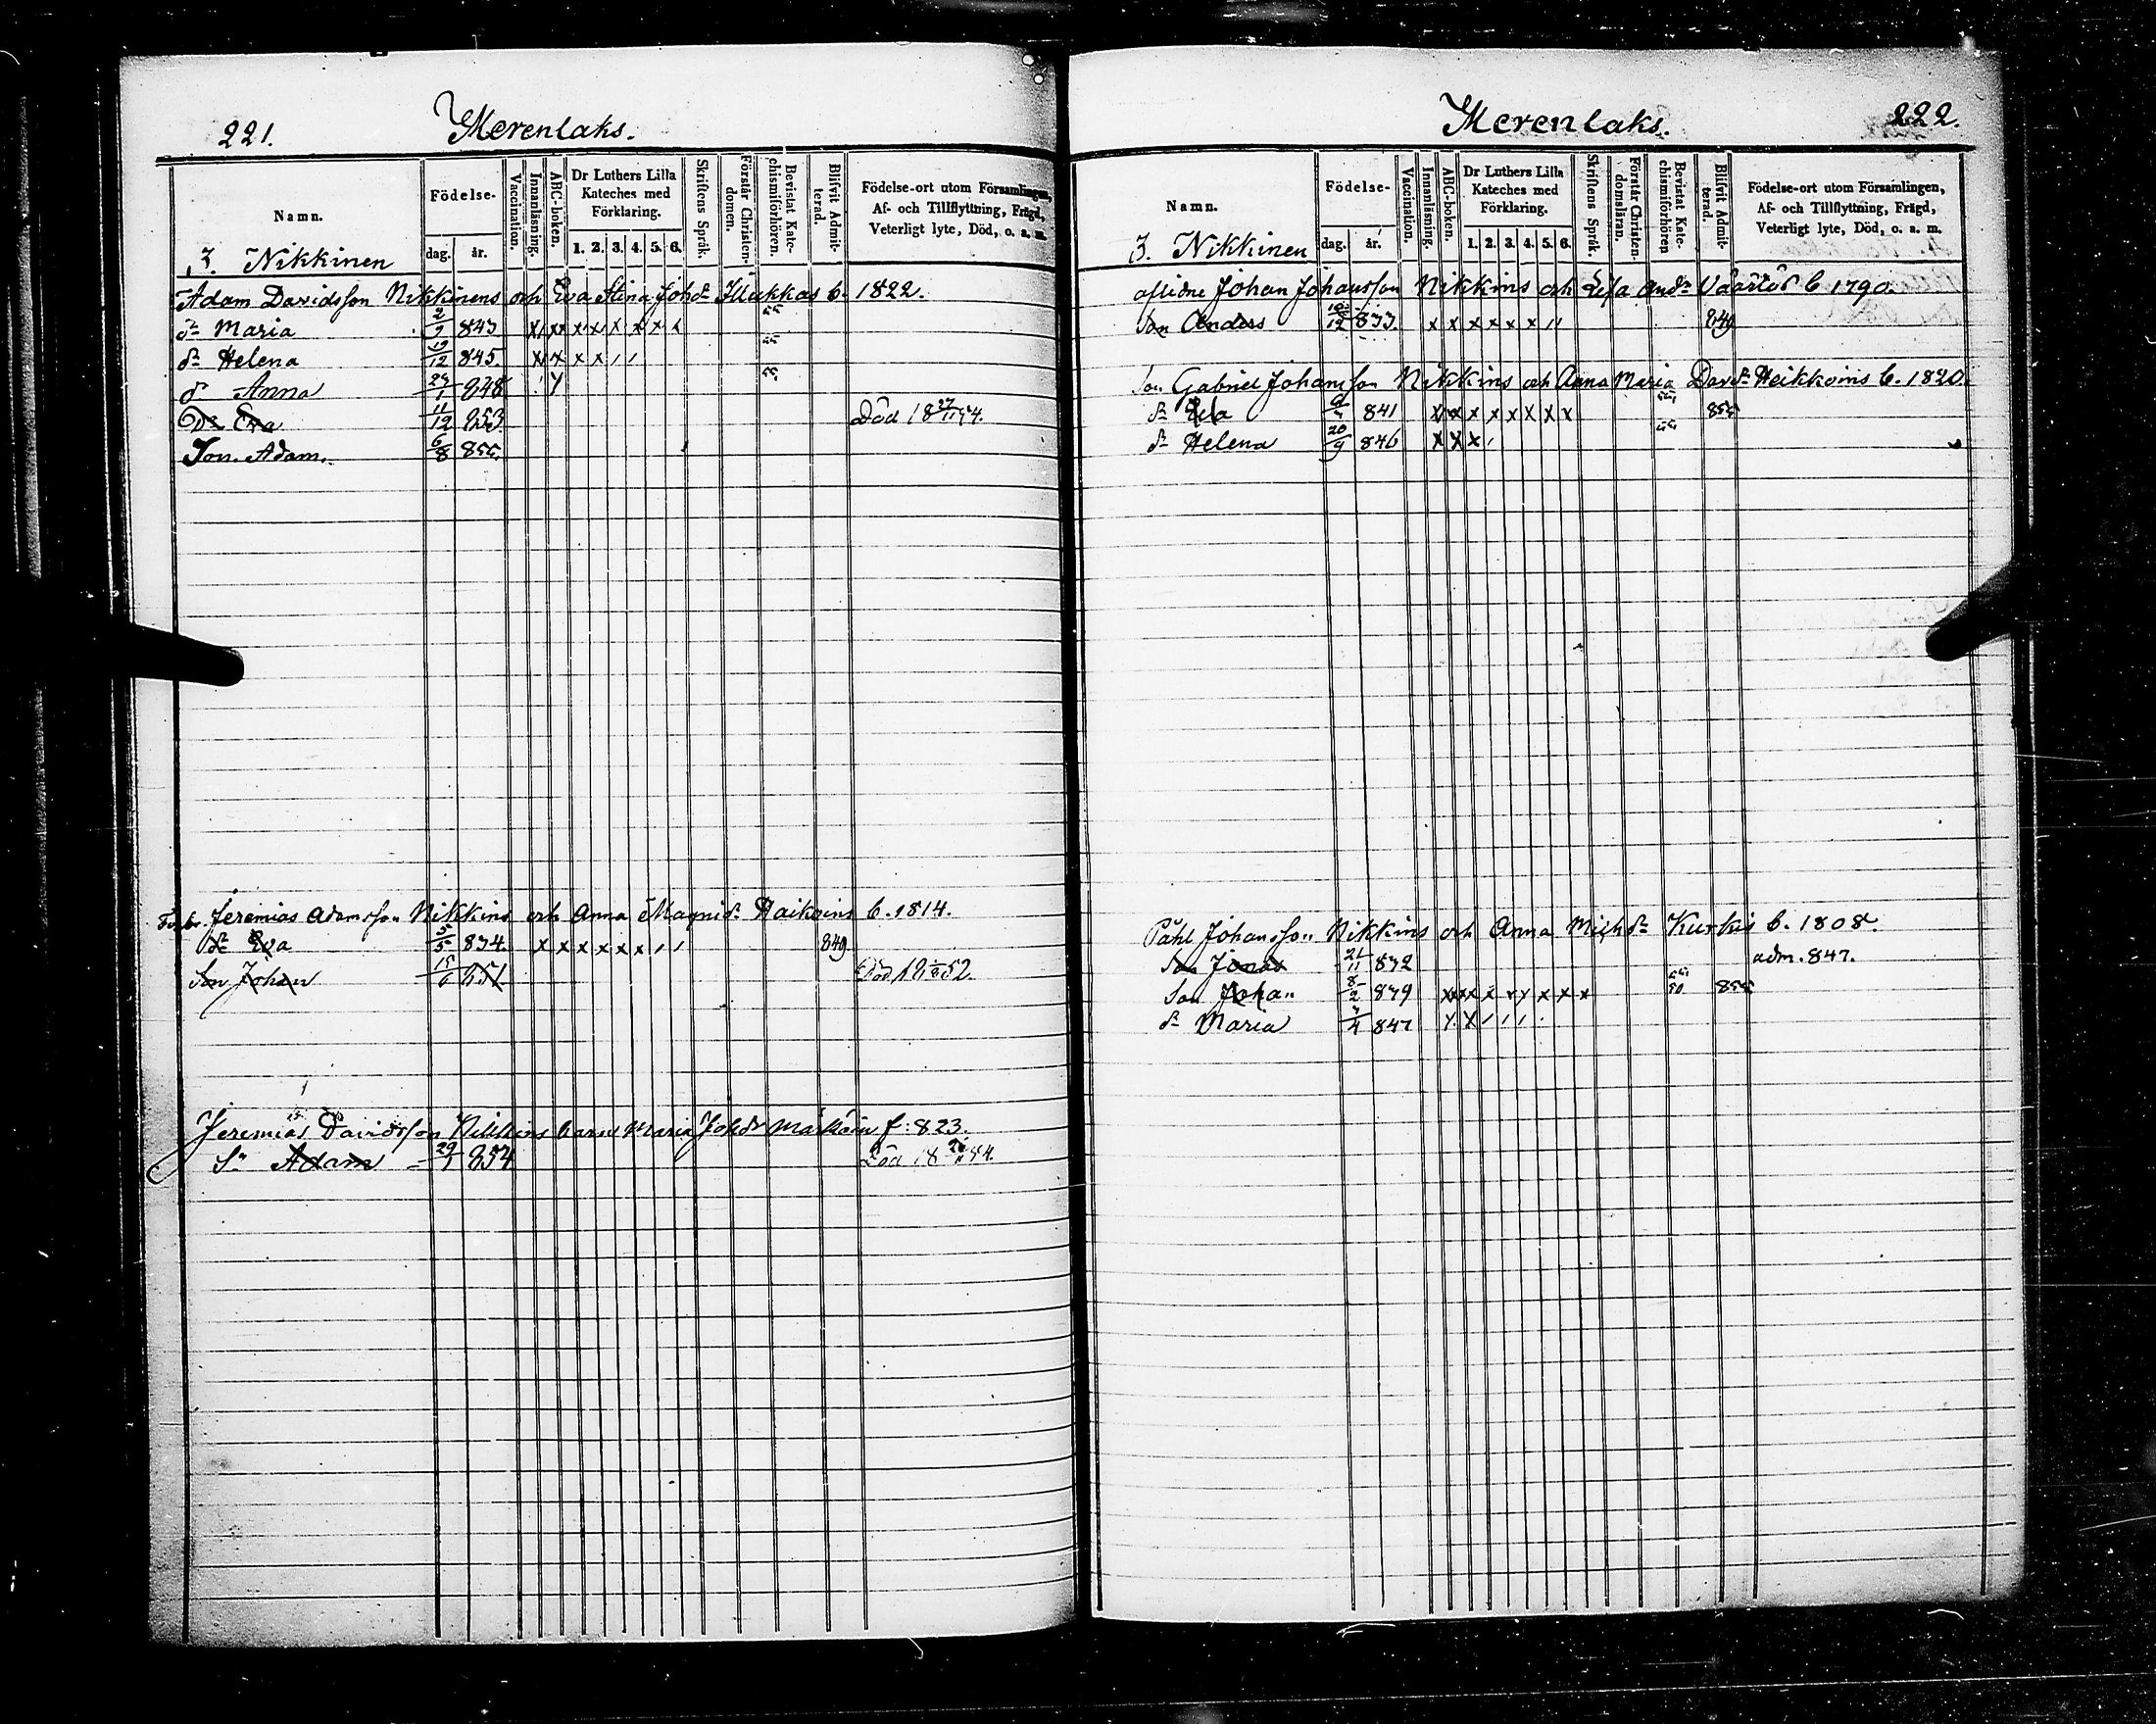 221. Merenlaks.
Namn. Födelse- dag. år. Vaccination. Innanläsning. ABC-boken. Dr Luthers Lilla Kateches med Förklaring. 1. 2. 3. 4. 5. 6. Skriftens Språk. Förstår Christendomen. Bevistat Katechismiförhören. Blifvit Admitterad. Födelse-ort utom Församlingen, Af- och Tillflyttning, Frägd, Veterligt lyte, Död, o. s. m.
3. Nikkinen
Adam Davidsson Nikkinens och Eva Stina Johdr b. 1822.
dr Maria 2/9 843 x xx x x x x x x 55
dr Helena 19/12 845. x x x x / / 55
dr Anna 29/1 848 55.
Dr Eva 11/12 853 Död 18 27/11 54.
Son. Adam. 6/8 855.
Jeremias Adamsson Nikkins och Anna Magnidr Haikoins b. 1814.
dr Eva 5/5 834 x x x x x x / / 849
Son Johan 15/6 851 Död 52.
Jeremias Davidsson Nikkins barn Maria Johdr f: 823.
Sn Adam 29/1 854 Död 18 54.
Merenlaks. 222.
Namn. Födelse- dag. år. Vaccination. Innanläsning. ABC-boken. Dr Luthers Lilla Kateches med Förklaring. 1. 2. 3. 4. 5. 6. Skriftens Språk. Förstår Christendomsläran. Bevistat Katechismiförhören Blifvit Admitterad. Födelse-ort utom Församlingen, Af- och Tillflyttning, Frägd, Veterligt lyte, Död, o. s. m.
3. Nikkinen
aflidne Johan Johansson Nikkins och Lisa Andr b 1790.
Son Anders 833. x x x x x x / / 849
Son Gabriel Johansson Nikkins och Anna Maria Davdr Heikkoins b. 1820.
dr 841 x xx x x x x x x 55 855
dr Helena 20/9 846 x x x / 55
Påhl Johansson Nikkins och Anna Michdr Kurkis b. 1808.
Son Jonas 21/11 832 adm. 847.
Son Johan 8/2 839 xxxx x x y x x x 50. 855
dr Maria 847 y x / / / .